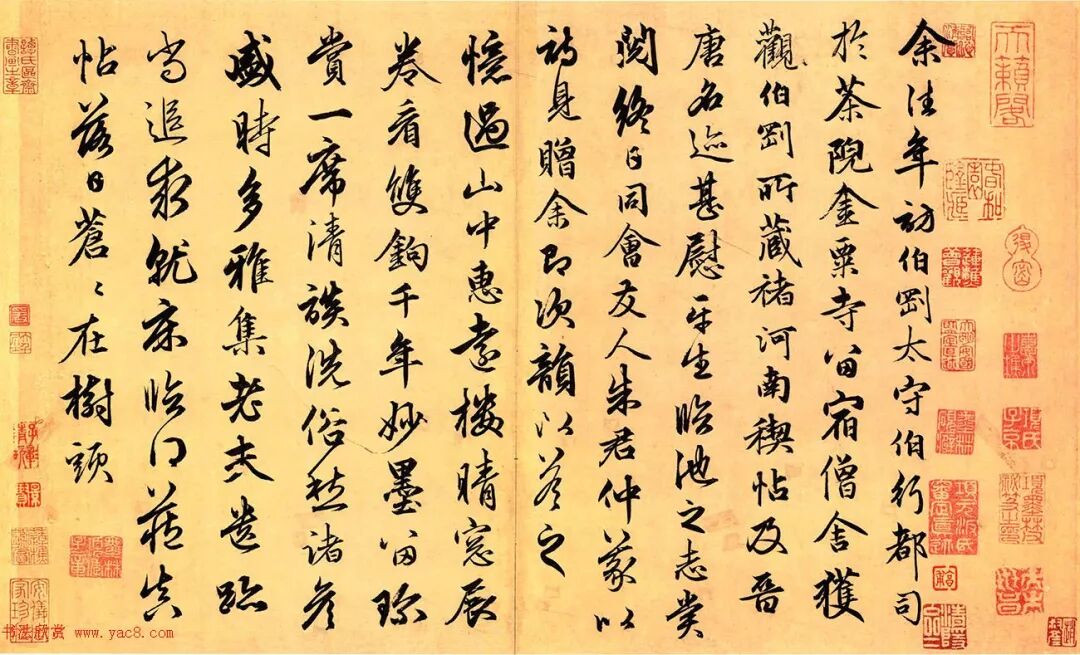 余往年訪伯剛太守伯行都司
於茶院金粟寺留宿僧舍獲
觀伯剛所藏褚河南禊帖及晉
唐名迹甚慰平生臨池之志賞
閱終日同會友人朱君仲蒙以
詩見贈余即次韻以答之
憶過山中惠遠樓晴窓展
卷看雙鉤千年妙墨留珍
賞一席清談洗俗愁諸彦
盛時多雅集老夫遺跡
尚追求就床臨真
帖落日蒼〻在樹頭
天籟閣
书法欣赏 www.yac8.com